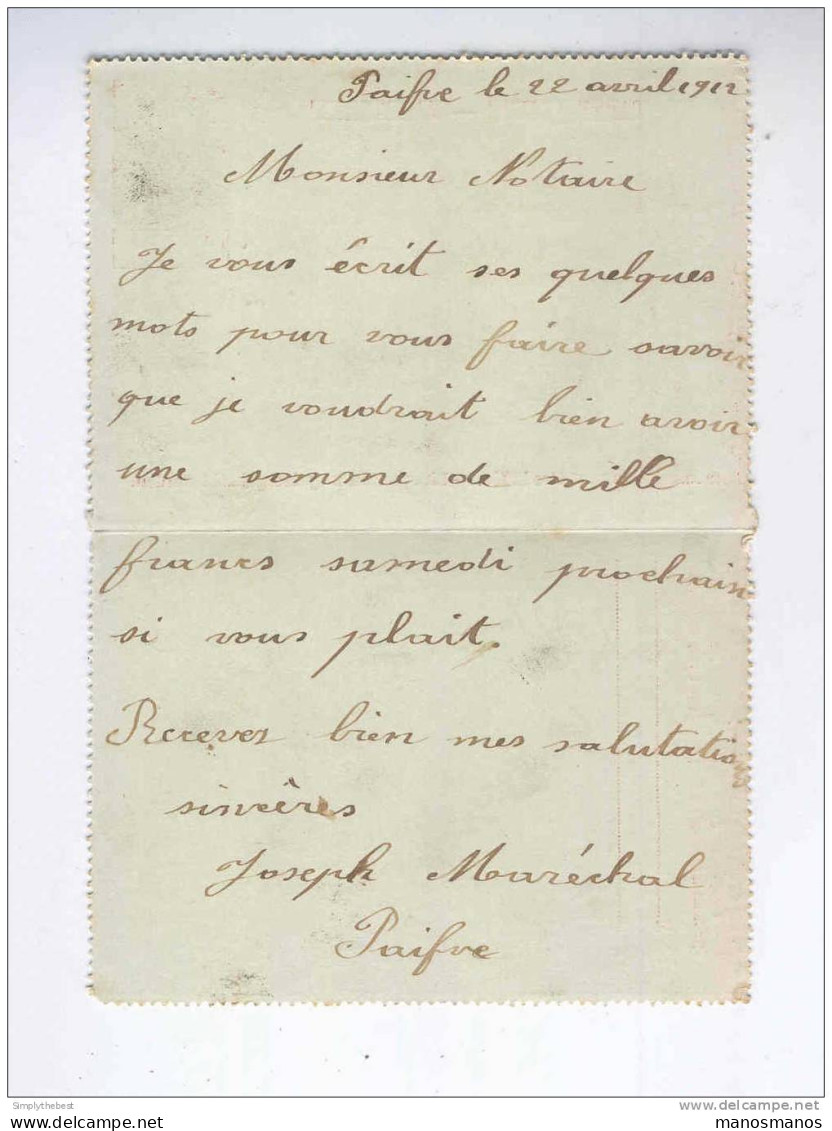 Paifve le 22 avril 1912
Monsieur Notaire
Je vous écrit ses quelques
mots pour vous faire savoir
que je voudrait bien avoir
une somme de mille
francs samedi prochain
si vous plait.
Recevez bien mes salutations
sincères
Joseph Maréchal
Paifve
Simplythebest
delcampe.net
manosmanos